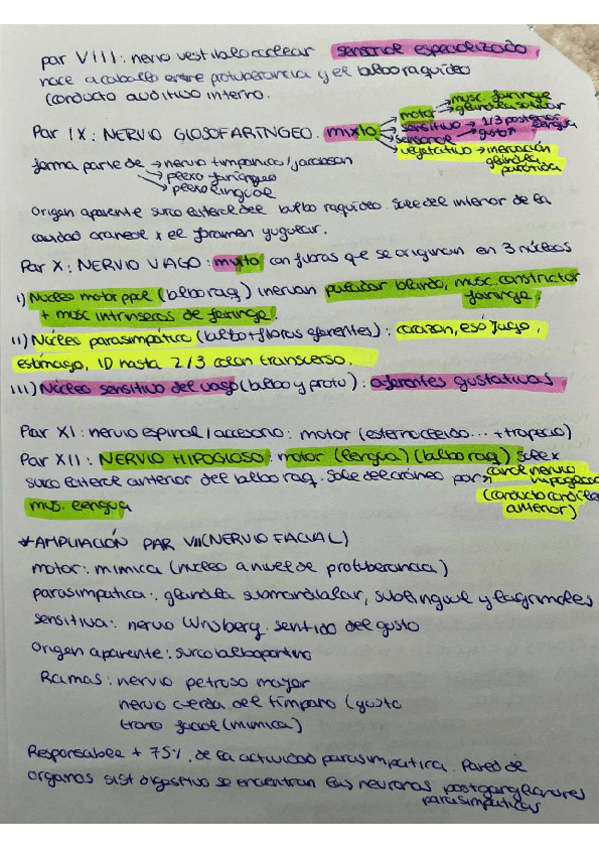 par VIII: nervio vestibulococlear sensorial especializado
nace a caballo entre protuberancia y el bulbo raquídeo
(conducto auditivo interno.
Par IX: NERVIO GLOSOFARINGEO. mixto
→ motor → musc. faringe
→ glándula salivar
→ sensitivo → 1/3 posterior lengua
→ sensorial → gusto
→ vegetativo → inervación glándula parótida
forma parte de → nervio timpanico/Jacobson
→ plexo faríngueo
→ plexo lingual
Origen aparente surco lateral del bulbo raquídeo. Sale del interior de la
cavidad craneal x el foramen yugular.
Par X: NERVIO VAGO: mixto con fibras que se originan en 3 núcleos
i) Núcleo motor ppal (bulbo raq) inervan paladar blando, musc. constrictor faringe.
+ musc intrínsecos de faringe.
ii) Núcleo parasimpático (bulbo + fibras eferentes): corazon, esófago,
estómago, ID hasta 2/3 colon transverso.
iii) Núcleo sensitivo del vago (bulbo y protu): aferentes gustativas
Par XI: nervio espinal/accesorio: motor (esternocleido... + trapecio)
Par XII: NERVIO HIPOGLOSO: motor (lengua) (bulbo raq) sale x
surco lateral anterior del bulbo raq. Sale del cráneo por canal nervio hipogloso
(conducto condíleo anterior)
mus. lengua
* AMPLIACIÓN PAR VII (NERVIO FACIAL)
motor: mímica (nucleo a nivel de protuberancia)
parasimpatica: glandula submandibular, sublingual y lagrimales
sensitiva: nervio Wrisberg. sentido del gusto
Origen aparente: surco bulboportino
Ramas: nervio petroso mayor
nervio cuerda del tímpano (gusto
tronco facial (mimica)
Responsable + 75% de la actividad parasimpatica. Pared de
organos sist digestivo se encuentran las neuronas postganglionares
parasimpaticas